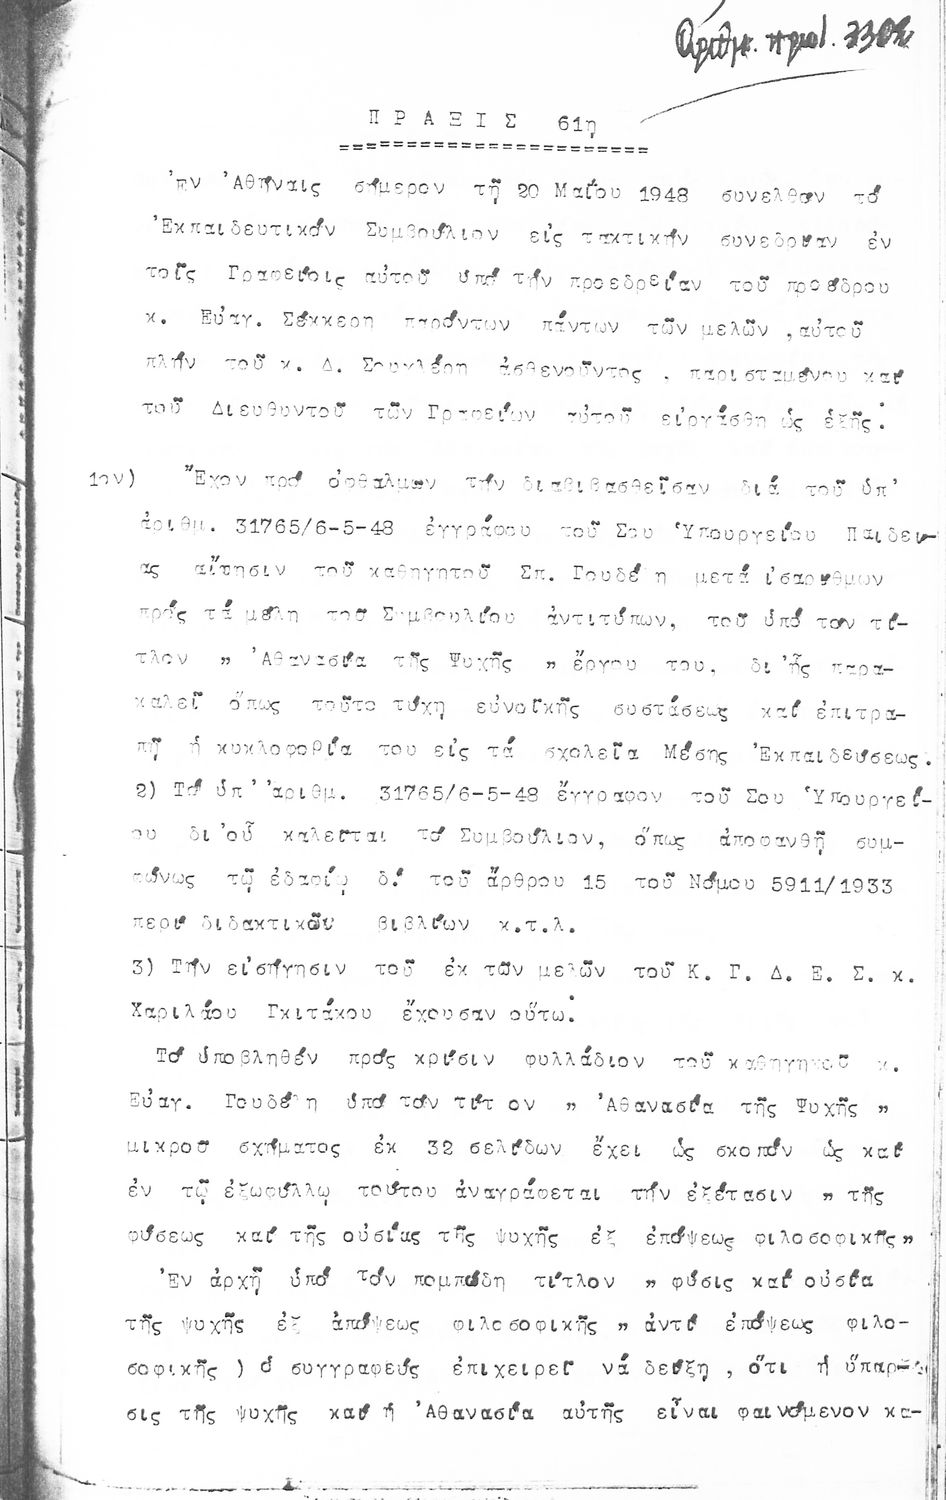 Αριθμ. πρωτ. 3302
ΠΡΑΞΙΣ 61η
Ἐν Ἀθήναις σήμερον τῇ 20 Μαΐου 1948 συνελθόν τό
Ἐκπαιδευτικόν Συμβούλιον εἰς τακτικήν συνεδρίαν ἐν
τοῖς Γραφείοις αὐτοῦ ὑπό τήν προεδρείαν τοῦ προέδρου
κ. Εὐαγ. Σέκκερη παρόντων πάντων τῶν μελῶν ,αὐτοῦ
πλήν τοῦ κ. Δ. Σουχλέρη ἀσθενοῦντος , παρισταμένου καί
τοῦ Διευθυντοῦ τῶν Γραφείων αὐτοῦ εἰργάσθη ὡς ἑξῆς:
1ον) Ἔχον πρό ὀφθαλμῶν τήν διαβιβασθεῖσαν διά τοῦ ὑπ'
ἀριθμ. 31765/6-5-48 ἐγγράφου τοῦ Σου Ὑπουργείου Παιδεί-
ας αἴτησιν τοῦ καθηγητοῦ Σπ. Γουδέ η μετά ἰσαρίθμων
πρός τά μέλη του Συμβουλίου ἀντιτύπων, τοῦ ὑπό τον τί-
τλον " Ἀθανασία τῆς Ψυχῆς " ἔργου του, δι ἧς παρα-
καλεῖ ὅπως τοῦτο τύχη εὐνοϊκῆς συστάσεως καί ἐπιτρα-
πῇ ἡ κυκλοφορία του εἰς τά σχολεῖα Μέσης Ἐκπαιδεύσεως.
2) Τό ὑπ' ἀριθμ. 31765/6-5-48 ἔγγραφον τοῦ Σου Ὑπουργεί-
ου δι'οὗ καλείται τό Συμβούλιον, ὅπως ἀποφανθῇ συμ-
φώνως τῷ ἐδαφίῳ δ.' τοῦ ἄρθρου 15 τοῦ Νόμου 5911/1933
περί διδακτικῶν βιβλίων κ.τ.λ.
3) Τήν εἰσήγησιν τοῦ ἐκ τῶν μελῶν τοῦ Κ. Γ. Δ. Ε. Σ. κ.
Χαριλάου Γκιτάκου ἔχουσαν οὕτω:
Τό ὑποβληθέν πρός κρίσιν φυλλάδιον τοῦ καθηγητοῦ κ.
Εὐαγ. Γουδέ η ὑπό τόν τίτ ον " Ἀθανασία τῆς Ψυχῆς "
μικροῦ σχήματος ἐκ 32 σελίδων ἔχει ὡς σκοπόν ὡς καί
ἐν τῷ ἐξωφύλλῳ τούτου ἀναγράφεται τήν ἐξέτασιν " τῆς
φύσεως καί τῆς οὐσίας τῆς ψυχῆς ἐξ ἐπόψεως φιλοσοφικῆς"
Ἐν ἀρχῇ ὑπό τόν πομπώδη τίτλον " φύσις καί οὐσία
τῆς ψυχῆς ἐξ ἀπόψεως φιλοσοφικῆς " ἀντί ἐπόψεως φιλο-
σοφικῆς ) ὁ συγγραφεύς ἐπιχειρεῖ νά δείξη , ὅτι ἡ ὕπαρ-
σις τῆς ψυχῆς καί ἡ Ἀθανασία αὐτῆς εἶναι φαινόμενον κα-